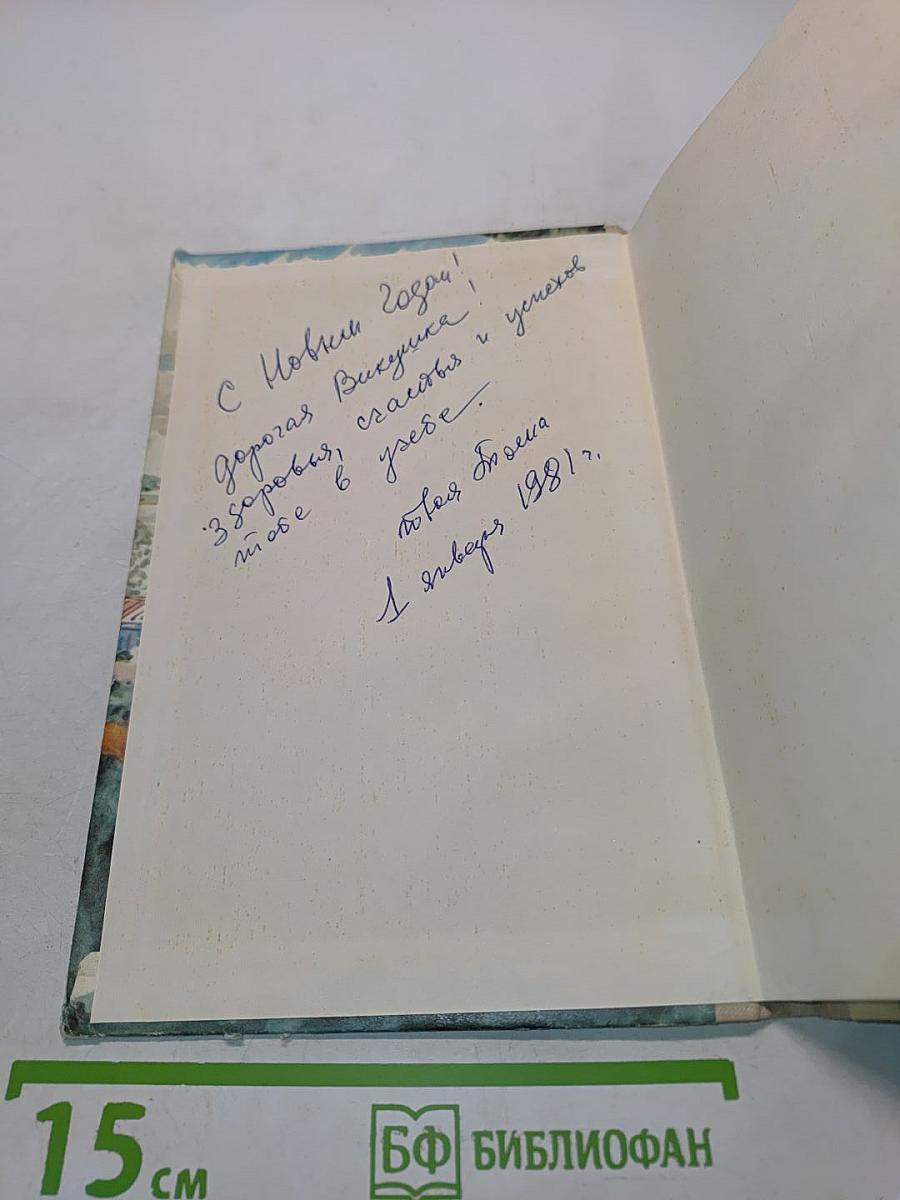 С Новым Годом!
дорогая Викушка!
Здоровья, счастья и успехов
тебе в учебе.
твоя Тома
1 января 1981 г.
15 см
БФ БИБЛИОФАН